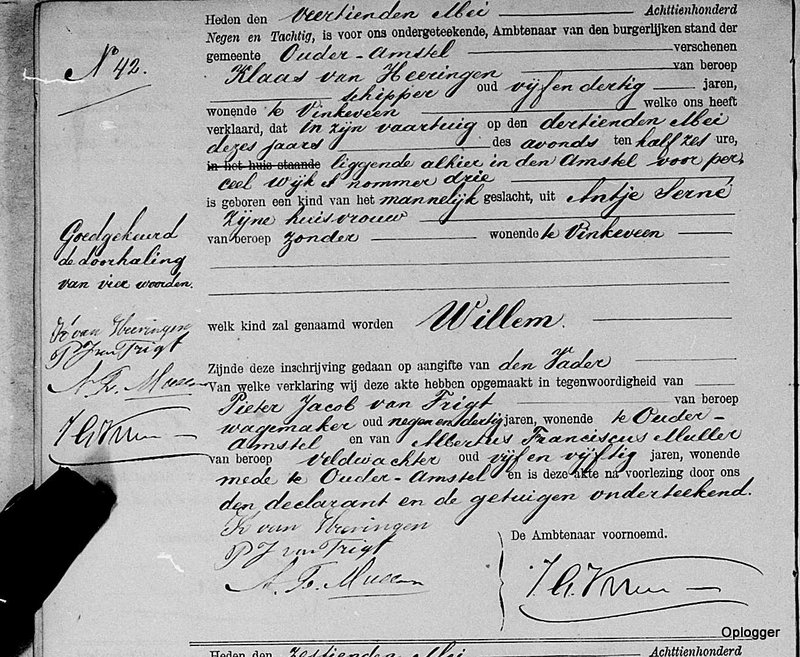 Heden den veertienden Mei Achttienhonderd
No 42.
Negen en Tachtig, is voor ons ondergeteekende, Ambtenaar van den burgerlijken stand der
gemeente Ouder-Amstel verschenen
Klaas van Heeringen van beroep
schipper oud vijf en dertig jaren,
wonende te Vinkeveen welke ons heeft
verklaard, dat in zijn vaartuig op den dertienden Mei
dezes jaars des avonds ten half zes ure,
in het huis staande liggende alhier in den Amstel voor per,
ceel wijk nommer drie
is geboren een kind van het mannelijk geslacht, uit Antje Serné
zijne huisvrouw
van beroep zonder wonende te Vinkeveen
Goedgekeurd
de doorhaling
van vier woorden.
welk kind zal genaamd worden Willem.
K van Heeringen
P J van Trigt
A. F. Muller
Zijnde deze inschrijving gedaan op aangifte van den Vader
Van welke verklaring wij deze akte hebben opgemaakt in tegenwoordigheid van
Pieter Jacob van Trigt van beroep
wagemaker oud negen en dertig jaren, wonende te Ouder-
Amstel en van Albertus Franciscus Muller
van beroep veldwachter oud vijf en vijftig jaren, wonende
mede te Ouder-Amstel en is deze akte na voorlezing door ons
den declarant en de getuigen onderteekend.
K van Heeringen
P J van Trigt
A. F. Muller
De Ambtenaar voornoemd.
Oplogger
Heden den zestienden Mei Achttienhonderd